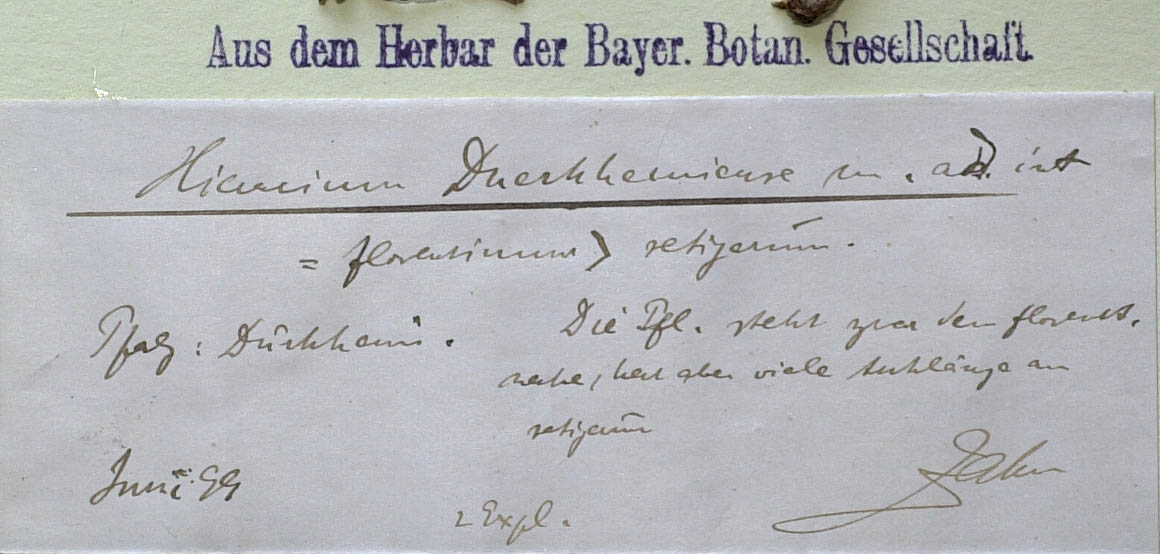 Aus dem Herbar der Bayer. Botan. Gesellschaft.
Hieracium Duerkhemiense m. ad int
= florentinum > setigerum.
Pfalz: Dürkheim.
Die Pfl. steht zwar dem florent.
nahe, hat aber viele Anklänge an
setigerum
Juni 99
2 Expl.
Zahn